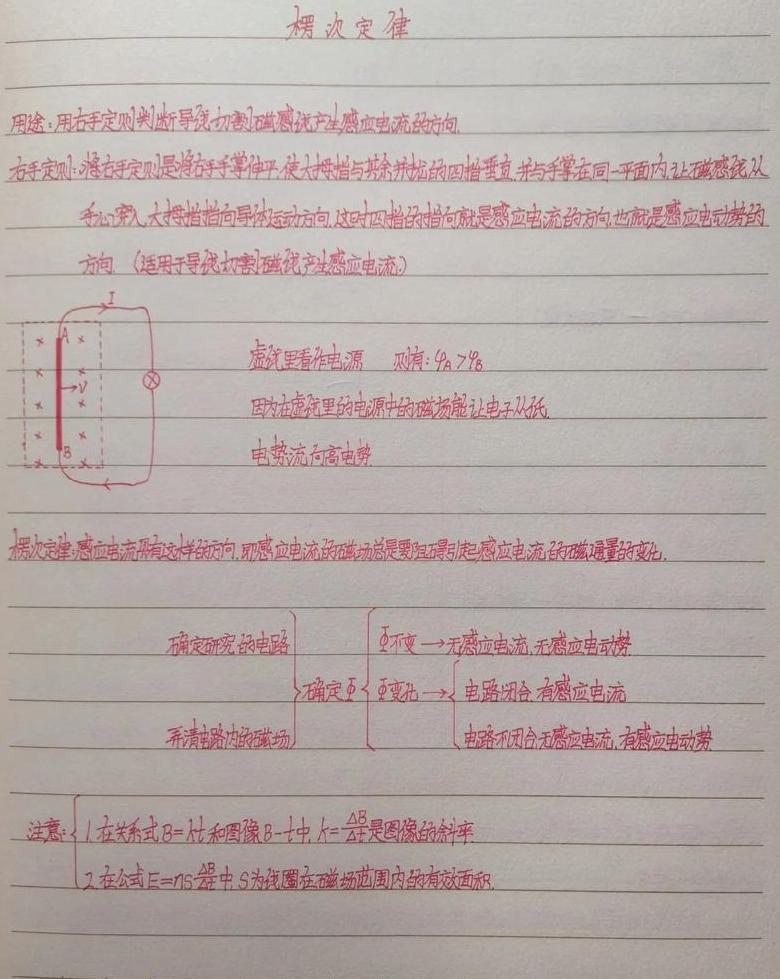 楞次定律
用途：用右手定则判断导线切割磁感线产生感应电流的方向.
右手定则：将右手定则是将右手手掌伸平，使大拇指与其余并拢的四指垂直，并与手掌在同一平面内，让磁感线从
手心穿入，大拇指指向导体运动方向，这时四指的指向就是感应电流的方向，也就是感应电动势的
方向.（适用于导线切割磁线产生感应电流.）
I
A
v
B
虚线里看作电源 则有：φA＞φB
因为在虚线里的电源中的磁场能让电子从低
电势流向高电势.
楞次定律：感应电流具有这样的方向，即感应电流的磁场总是要阻碍引起感应电流的磁通量的变化.
确定研究的电路
弄清电路内的磁场
确定Φ
Φ不变→无感应电流，无感应电动势.
Φ变化→
电路闭合，有感应电流
电路不闭合，无感应电流，有感应电动势.
注意：
1.在关系式B=kt和图像B-t中，k=ΔB/Δt是图像的斜率.
2.在公式E=nSΔB/Δt中，S为线圈在磁场范围内的有效面积.